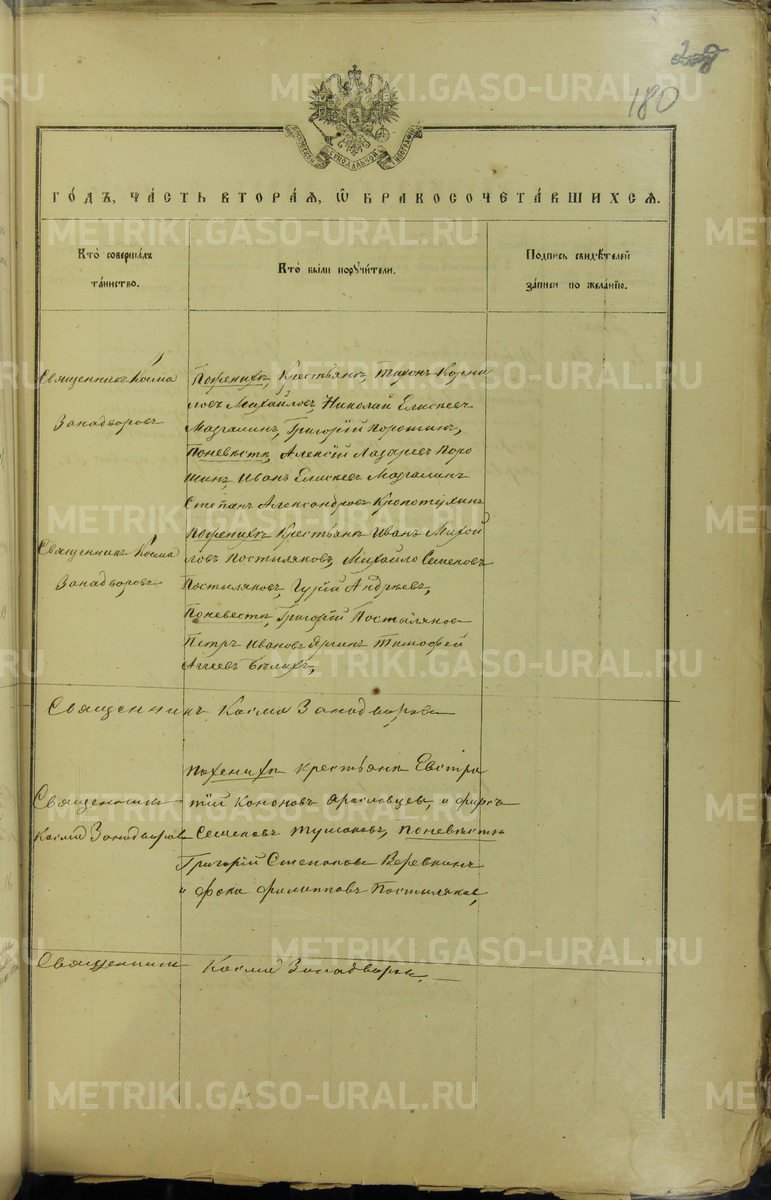 180
МОСКОВСКОЙ СѴНОДАЛЬНОЙ ТИПОГРАФІИ
ГО́ДЪ, ЧА́СТЬ ВТОРА́Я, Ѡ БРАКОСОЧЕТА́ВШИХСЯ.
Кто̀ соверша́лъ
та́инство.
Кто̀ бы́ли поручи́тели.
Подпись свидѣ́телей
за́писи по жела́нїю.
Священникъ Косма
Занадворовъ
Поженихѣ, Крестьянѣ, Тихонъ Корни
ловъ Михайловъ, Николай Елисеевъ
Мадгалинъ, Григорій Порошинъ,
Поневѣстѣ, Алексѣй Лазаревъ Поро
шинъ, Иванъ Елисеевъ Мадгалинъ
Степанъ Александровъ Кропотухинъ
Священникъ Косма
Занадворовъ
Поженихѣ Крестьянѣ Иванъ Михай
ловъ Постыляковъ, Михайло Семеновъ
Постыляковъ, Гурій Андрѣевъ,
Поневестѣ, Григорій Постыляковъ
Петръ Ивановъ Ярлинъ Тимофей
Агеевъ Бѣлихъ,
Священникъ Косма Занадворовъ
Священникъ
Косма Занадворовъ
Поженихѣ крестьянѣ Евстра
тій Кононовъ Ярославцевъ, и Фирсъ
Семеновъ Тушаковъ, Поневѣстѣ
Григорій Степановъ Веревкинъ
и Фока Филипповъ Постыляковъ,
Священникъ Косма Занадворовъ
METRIKI.GASO-URAL.RU